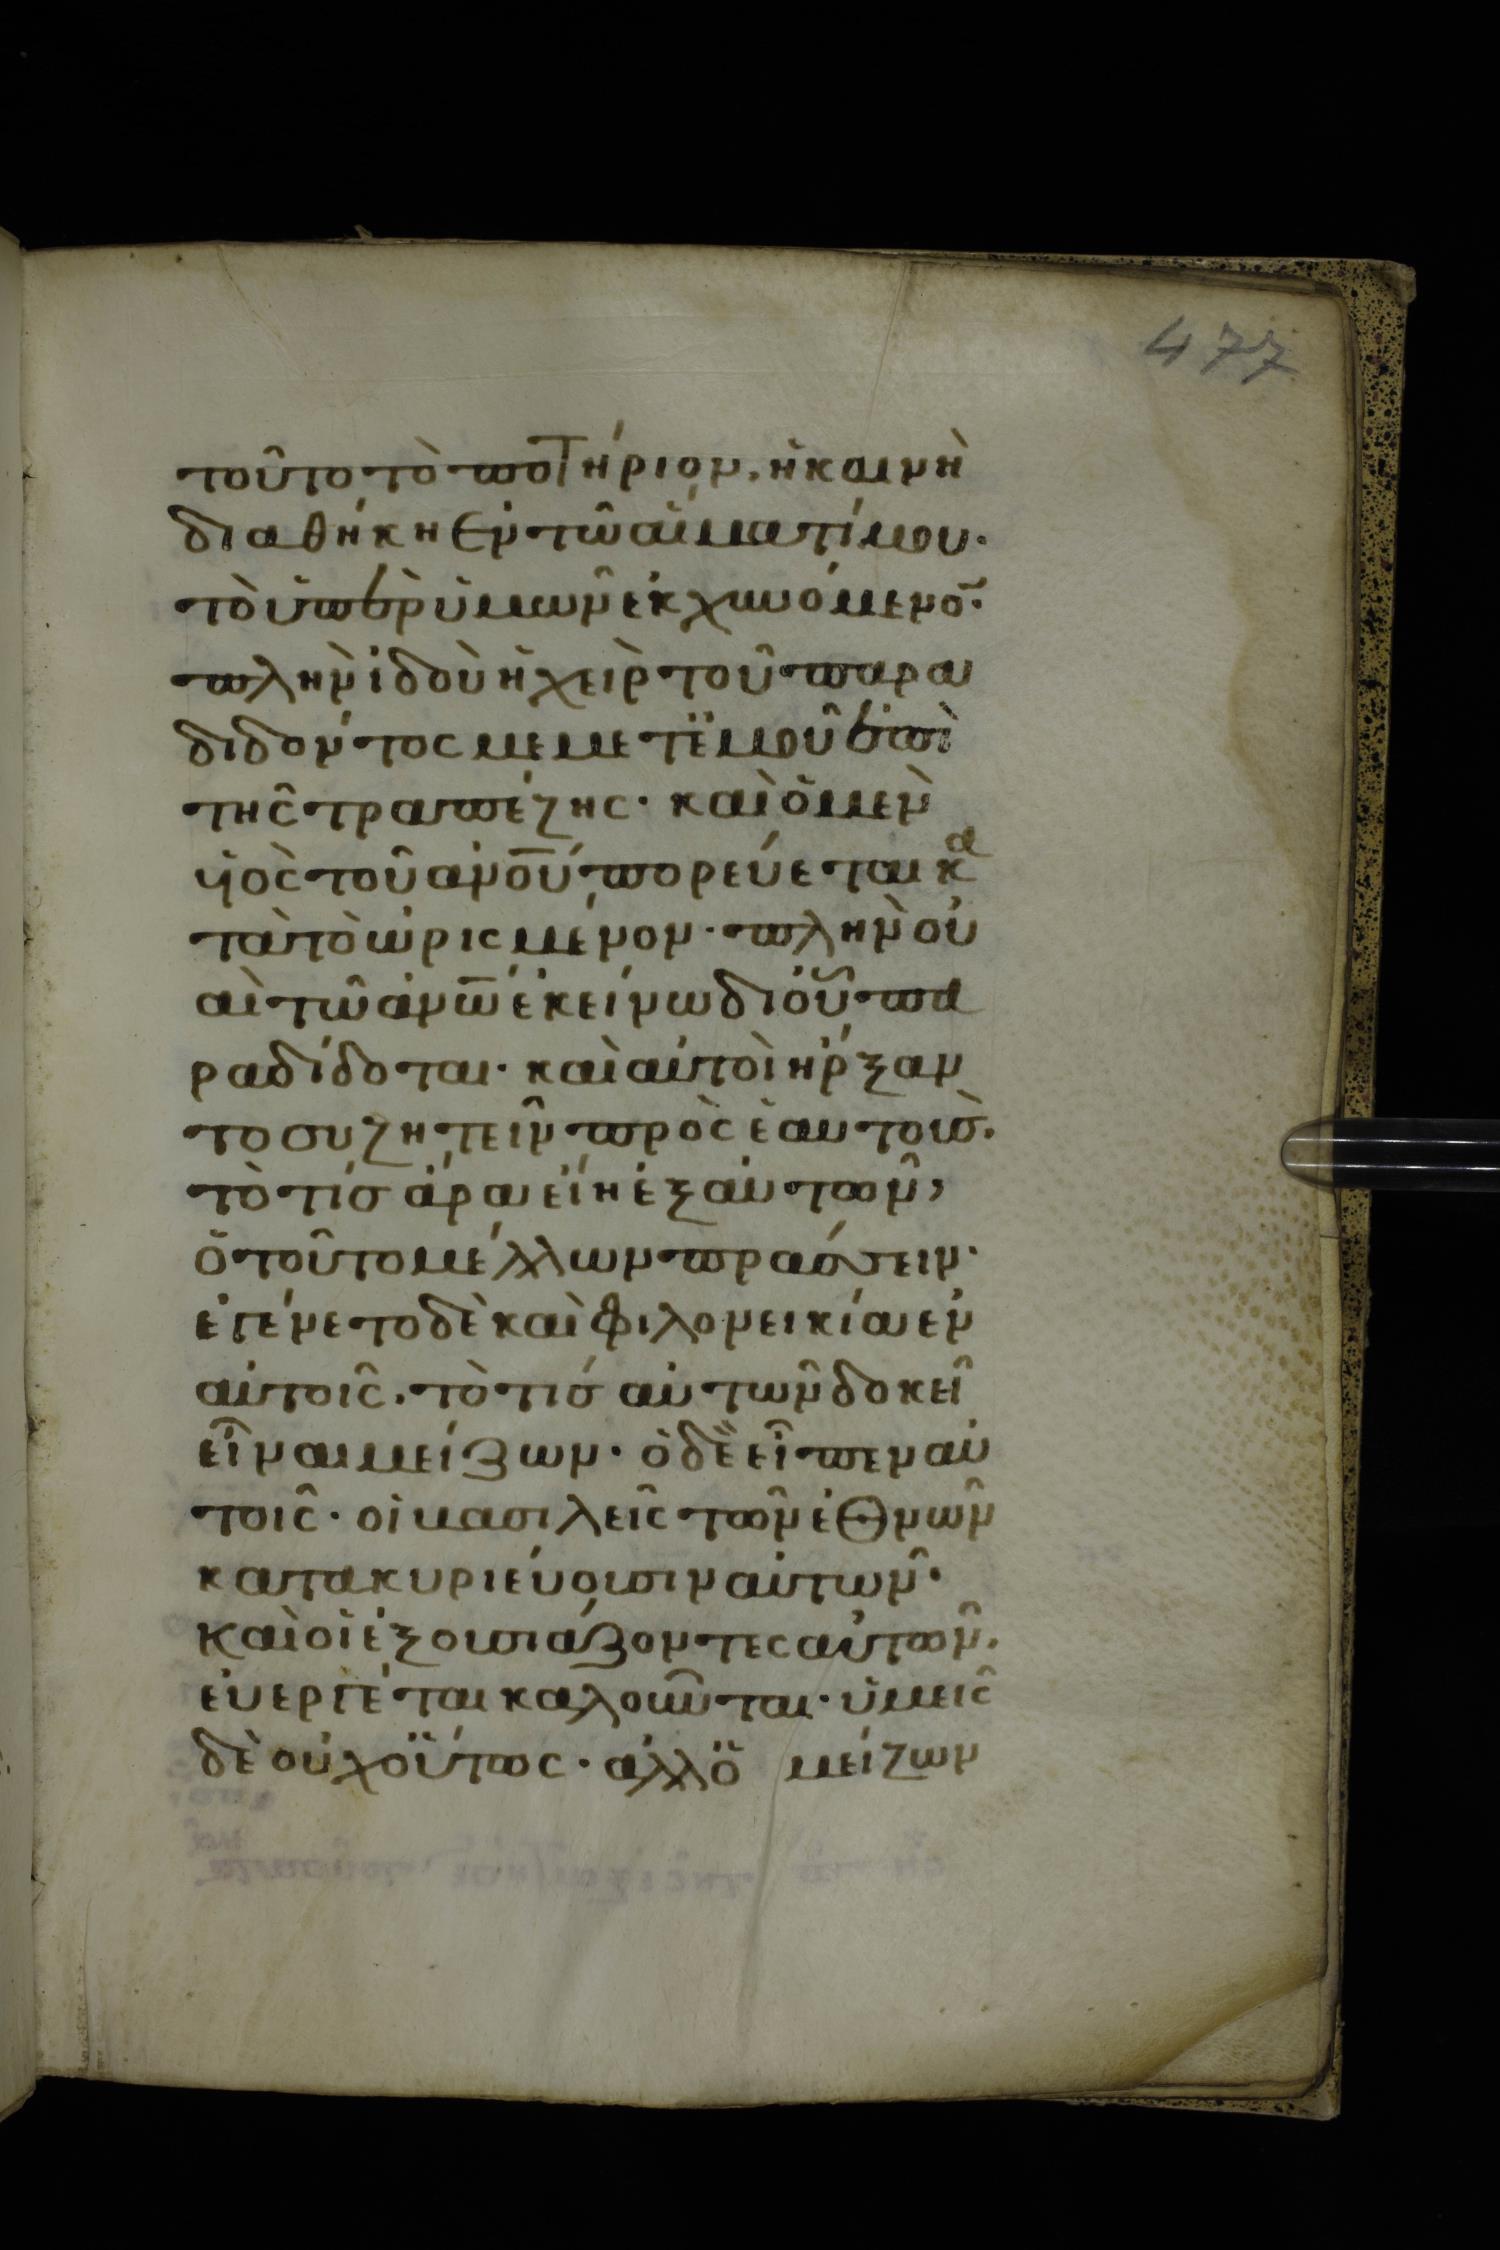 477
τοῦτο τὸ ποτήριον, ἡ καινὴ
διαθήκη ἐν τῶ αἵματί μου·
τὸ ὑπὲρ ὑμῶν ἐκχυνόμενο̅·
πλὴν ἰδοὺ ἡ χεὶρ τοῦ παρα
διδόντος με μετ ἐμοῦ ἐπὶ
τῆς τραπέζης· καὶ ὁ μὲν
υἱὸς τοῦ ἀν̅ο̅υ̅ πορεύεται κα
τὰ τὸ ὡρισμένον· πλὴν οὐ
αὶ τῶ ἀν̅ω̅ ἐκείνω δι οὗ πα
ραδίδοται· καὶ αὐτοὶ ἤρξαν
το συζητεῖν πρὸς ἑαυτοὺσ.
τὸ τίσ ἄρα εἴη ἐξ αὐτῶν,
ὁ τοῦτο μέλλων πράσσειν·
ἐγένετο δὲ καὶ φιλονεικία ἐν
αὐτοῖς, τὸ τίσ αὐτῶν δοκεῖ
εἶναι μείζων· ὁ δὲ εἶπεν αὐ
τοῖς· οἱ βασιλεῖς τῶν ἐθνῶν
κατακυριεύουσιν αὐτῶν·
καὶ οἱ ἐξουσιάζοντες αὐτῶν.
εὐεργέται καλοῦνται· ὑμεῖς
δὲ οὐχ οὕτως· ἀλλ ὁ μείζων